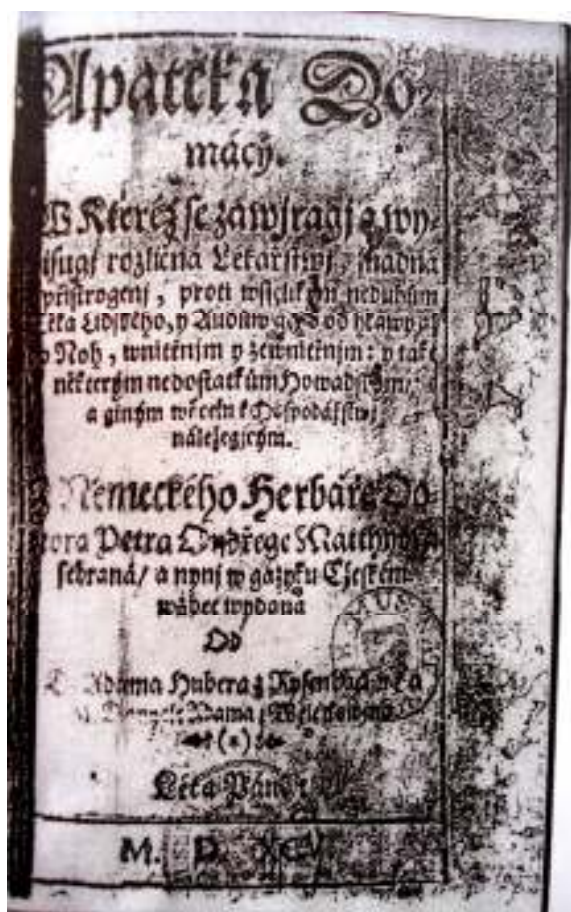 Apatěka Do-
mácý.
W Kteréž se zawjragj a wy-
pisugj rozličná Lékařstwj, snadná
přistrogenj, proti wšeliki̇́m neduhům
Těla Lidského, y Audůw geho od hlawy až
do Noh, wnitřnjm y zewnitřnjm: y také
některým nedostatkům Howadským,
a giným wěcem k Hospodářstwj
náležegjcým.
Z Německého Herbáře Do-
ktora Petra Ondřege Matthyola
sebraná/ a nynj w gazyku Cžeském
wůbec wydaná
Od
D. Adama Hubera z
Adama z
(*)
Léta Páně
M. D. XCV
MUS